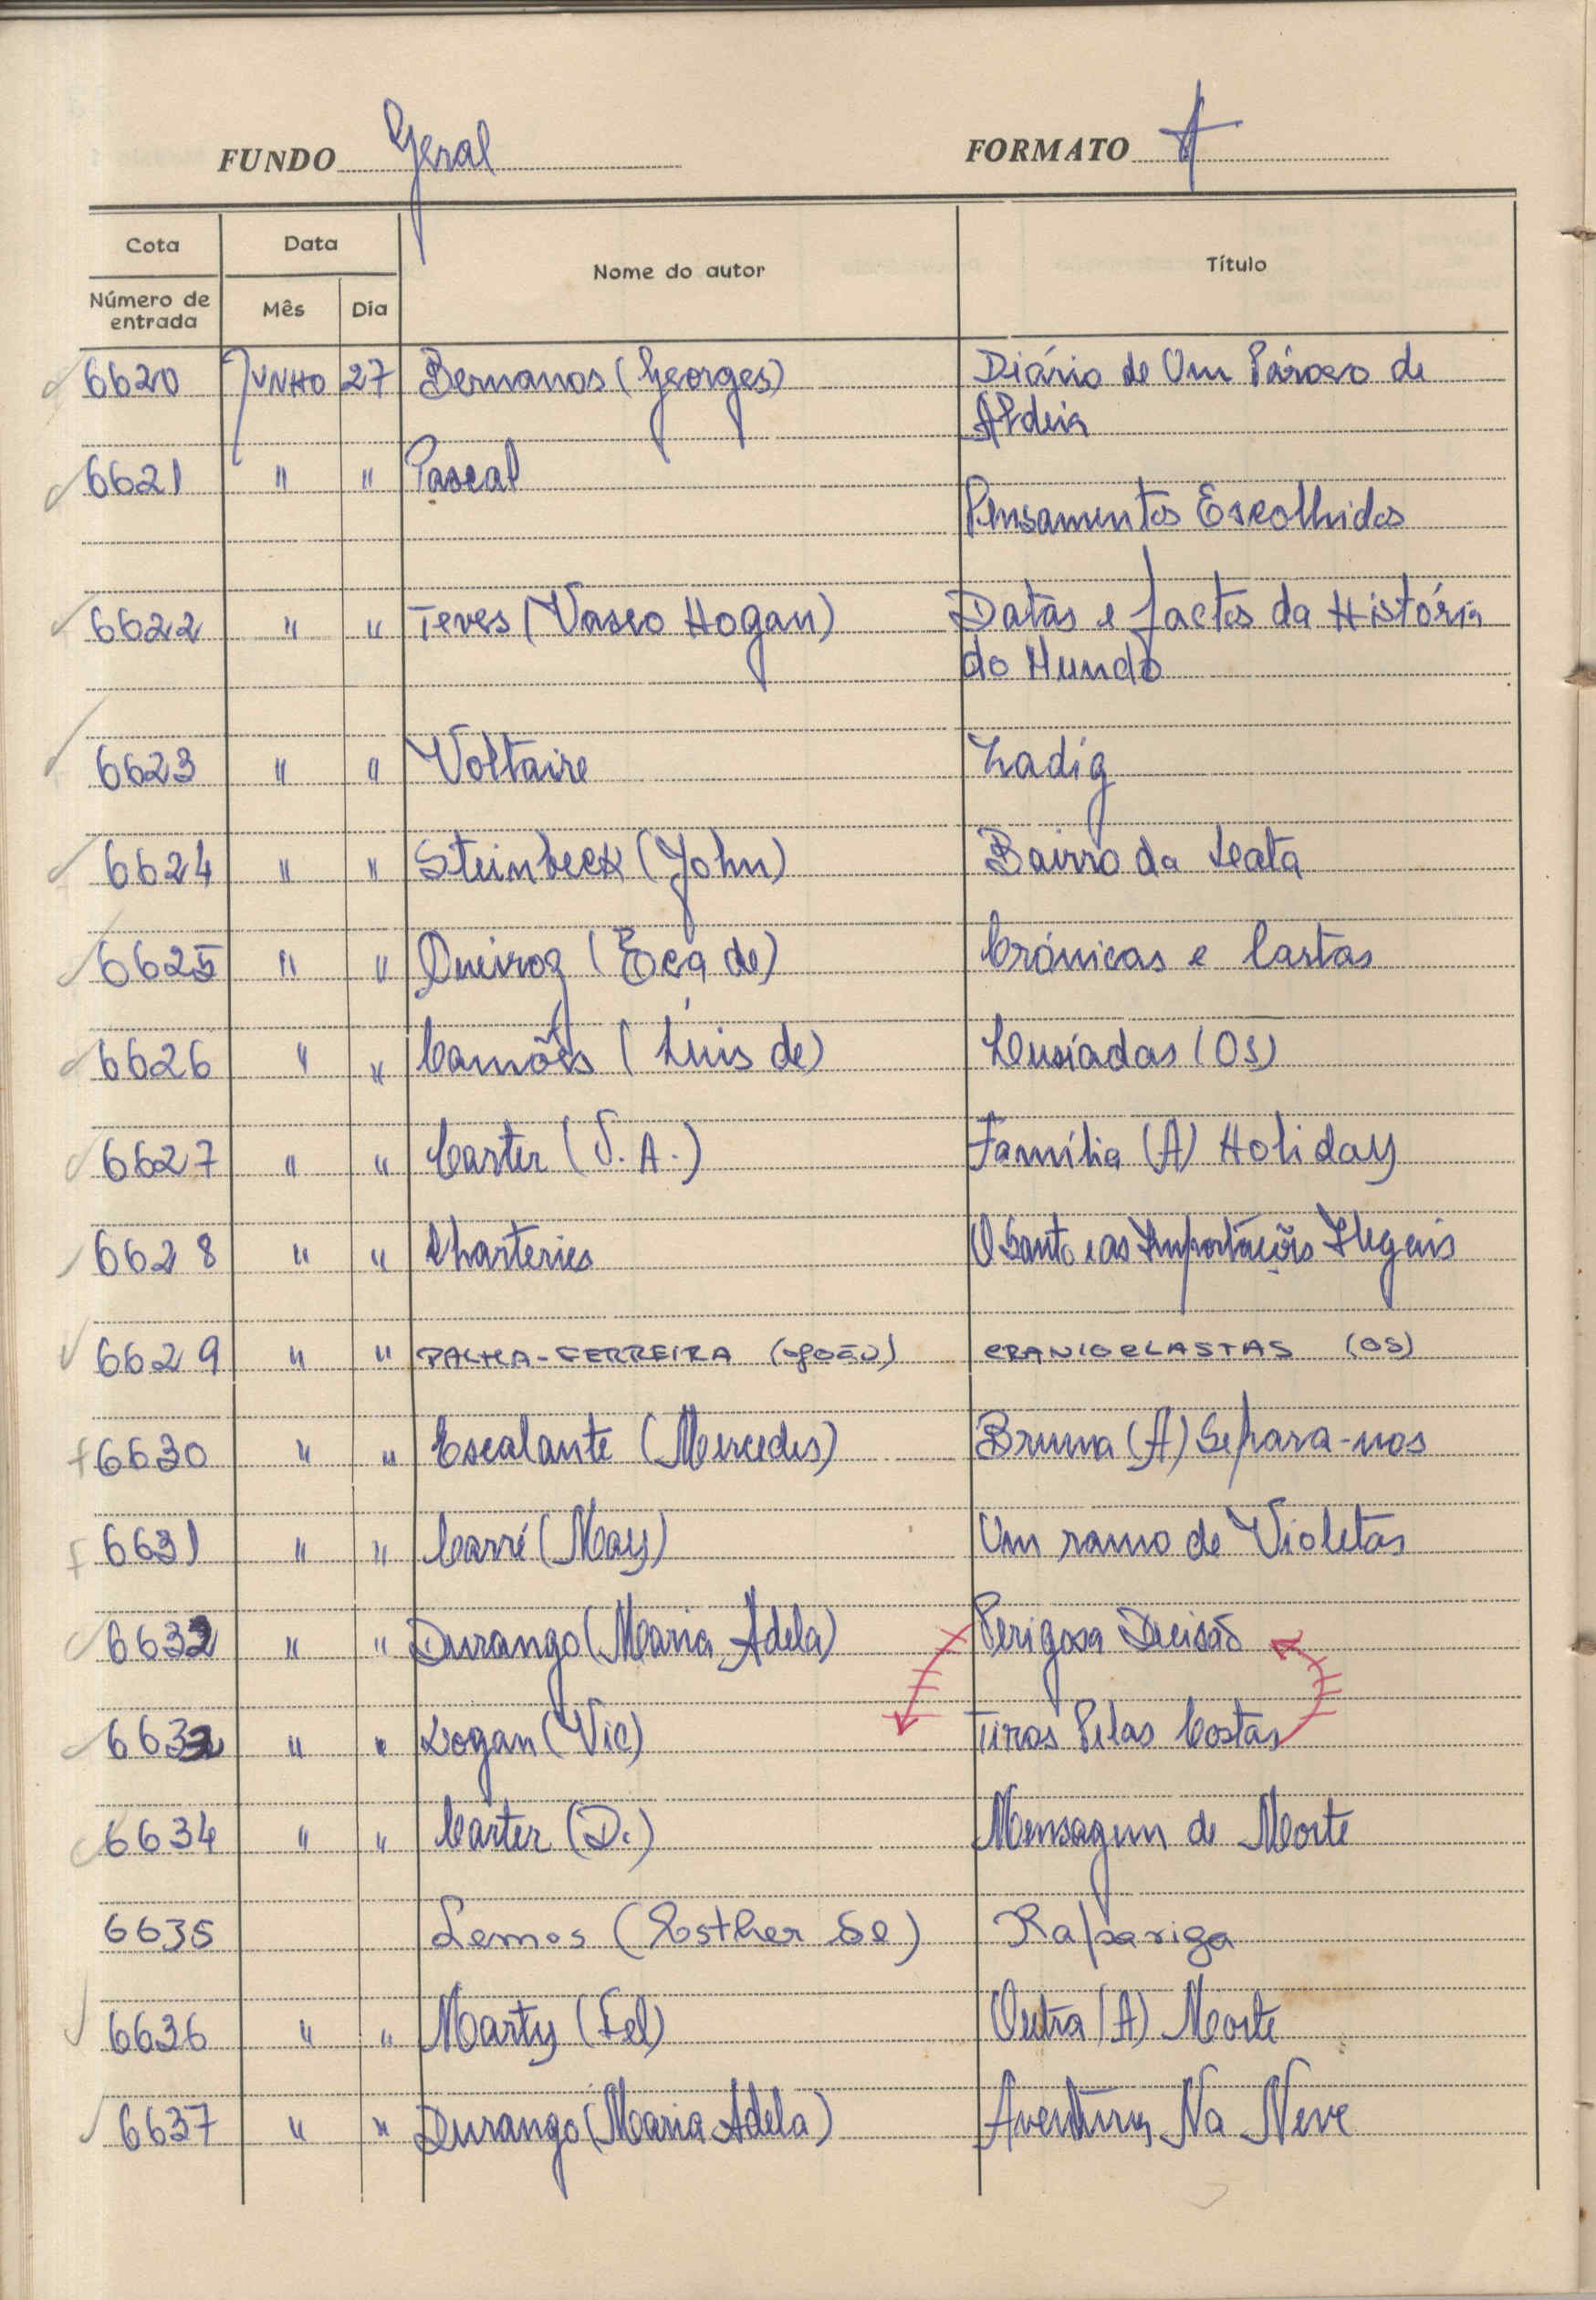 FUNDO Geral FORMATO A
Cota Data Nome do autor Título
Número de entrada Mês Dia
6620 JUNHO 27 Bernanos (Georges) Diário de Um Pároco de
Aldeia
6621 " " Pascal
Pensamentos Escolhidos
6622 " " Teves (Vasco Hogan) Datas e factos da História
do Mundo
6623 " " Voltaire Zadig
6624 " " Steinbeck (John) Bairro da Lata
6625 " " Queiroz (Eça de) Crónicas e Cartas
6626 " " Camões (Luís de) Lusíadas (Os)
6627 " " Carter (S. A.) Família (A) Holiday
6628 " " Charteries O Santo e as Importações Ilegais
6629 " " PALMA-FERREIRA (JOÃO) CRANIOCLASTAS (OS)
6630 " " Escalante (Mercedes) Bruma (A) Separa-nos
6631 " " Carré (May) Um ramo de Violetas
6632 " " Durango (Maria Adela) Perigosa Decisão
6632 " " Logan (Vic) Tiros Pelas Costas
6634 " " Carter (D.) Mensagem de Morte
6635 Lemos (Esther de) Rapariga
6636 " " Marty (Fel) Outra (A) Morte
6637 " " Durango (Maria Adela) Aventura Na Neve